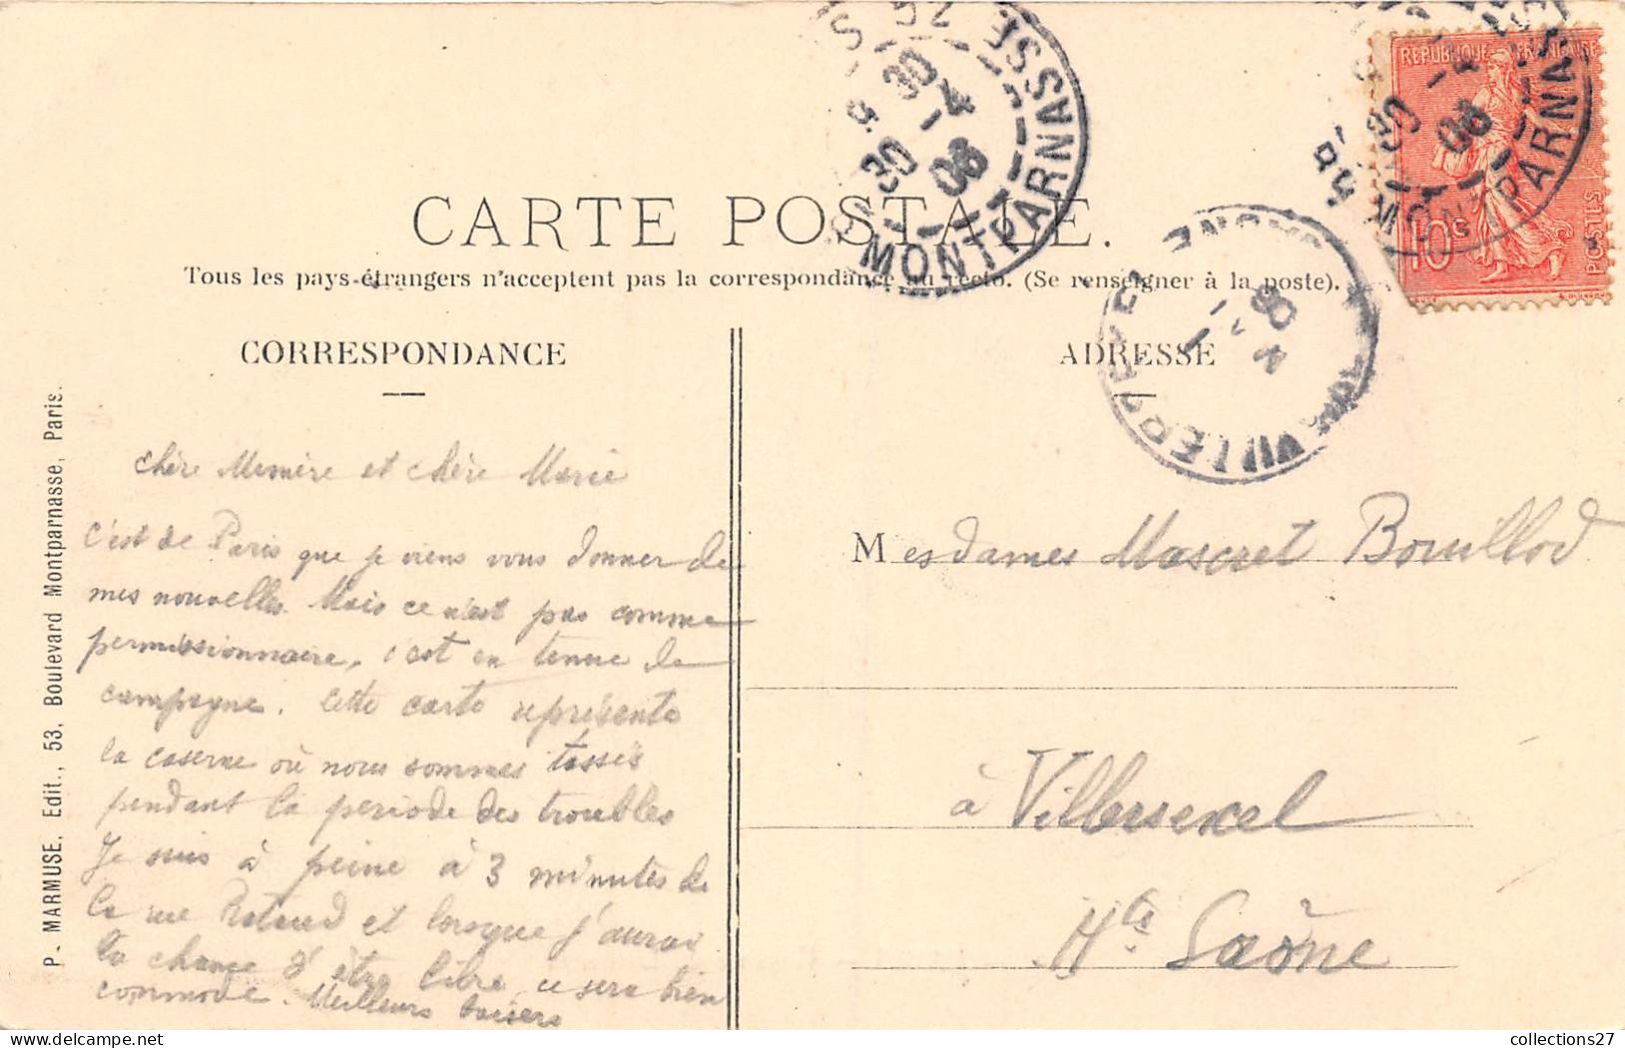 CARTE POSTALE.
Tous les pays étrangers n'acceptent pas la correspondance au recto. (Se renseigner à la poste).
CORRESPONDANCE
ADRESSE
P. MARMUSE, Edit., 53, Boulevard Montparnasse, Paris.
chère Memère et chère Marie
c'est de Paris que je viens vous donner de
mes nouvelles. Mais ce n'est pas comme
permissionnaire, c'est en tenue de
campagne. Cette carte représente
la caserne où nous sommes tassés
pendant la période des troubles
Je suis à peine à 3 minutes de
la rue Rataud et lorsque j'aurai
la chance d'être libre, ce sera bien
commode. Meilleurs baisers
Mesdames Mascret Bouillod
à Villersexel
Hte Saône
REPUBLIQUE FRANÇAISE
10c
POSTES
MONTPARNASSE
30 - 4
06
MONTPARNASSE
06
collections27